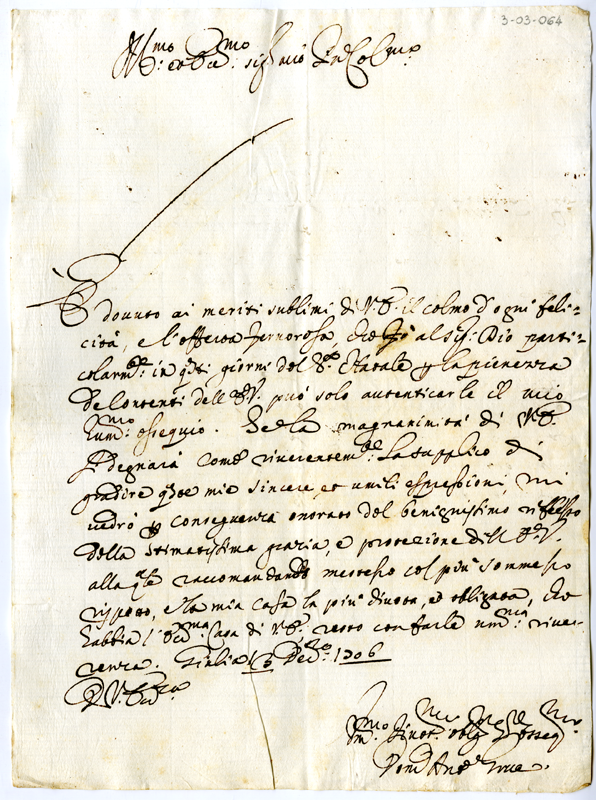 3-03-064
Ill.mo et Ecc.mo Sig.r mio
È dovuto ai meriti sublimi di V.E. il colmo d'ogni feli=
cità, e l'offerta fervorosa, che fò al Sig.r Dio parti=
colarm.te in q.sti giorni del S.to Natale p la pienezza
de contenti dell'E.V. può solo autenticarle il mio
hum.mo ossequio. Se la magnanimità di V.E.
si degnarà come riverentem.te la supplico di
gradire q.ste mie sincere, et umili espressioni, mi
vedrò p conseguenza onorato del benignissimo riflesso
della stimatissima grazia, e protezione dell'E.V.
alla q.le raccomandando me stesso col più sommesso
rispetto, e la mia casa la più divota, ed obligata, che
habbia l'Ecc.ma Casa di V.E. resto con farle um.ma rive=
renza. Giulia Dec.bre 1706
D V. Ecc.za
Um.mo Divot. oblig. osseq.
Dom. Ant.